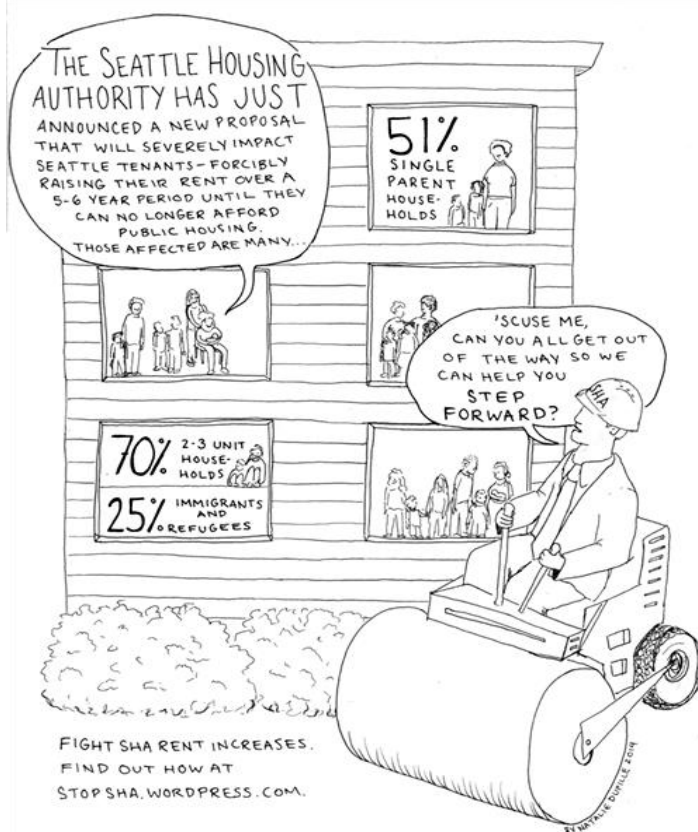 THE SEATTLE HOUSING
AUTHORITY HAS JUST
ANNOUNCED A NEW PROPOSAL
THAT WILL SEVERELY IMPACT
SEATTLE TENANTS - FORCIBLY
RAISING THEIR RENT OVER A
5-6 YEAR PERIOD UNTIL THEY
CAN NO LONGER AFFORD
PUBLIC HOUSING.
THOSE AFFECTED ARE MANY...
51%
SINGLE
PARENT
HOUSE-
HOLDS
'SCUSE ME,
CAN YOU ALL GET OUT
OF THE WAY SO WE
CAN HELP YOU
STEP
FORWARD?
SHA
70% 2-3 UNIT
HOUSE-
HOLDS
25% IMMIGRANTS
AND
REFUGEES
FIGHT SHA RENT INCREASES.
FIND OUT HOW AT
STOPSHA.WORDPRESS.COM.
BY NATALIE DUPILLE 2014